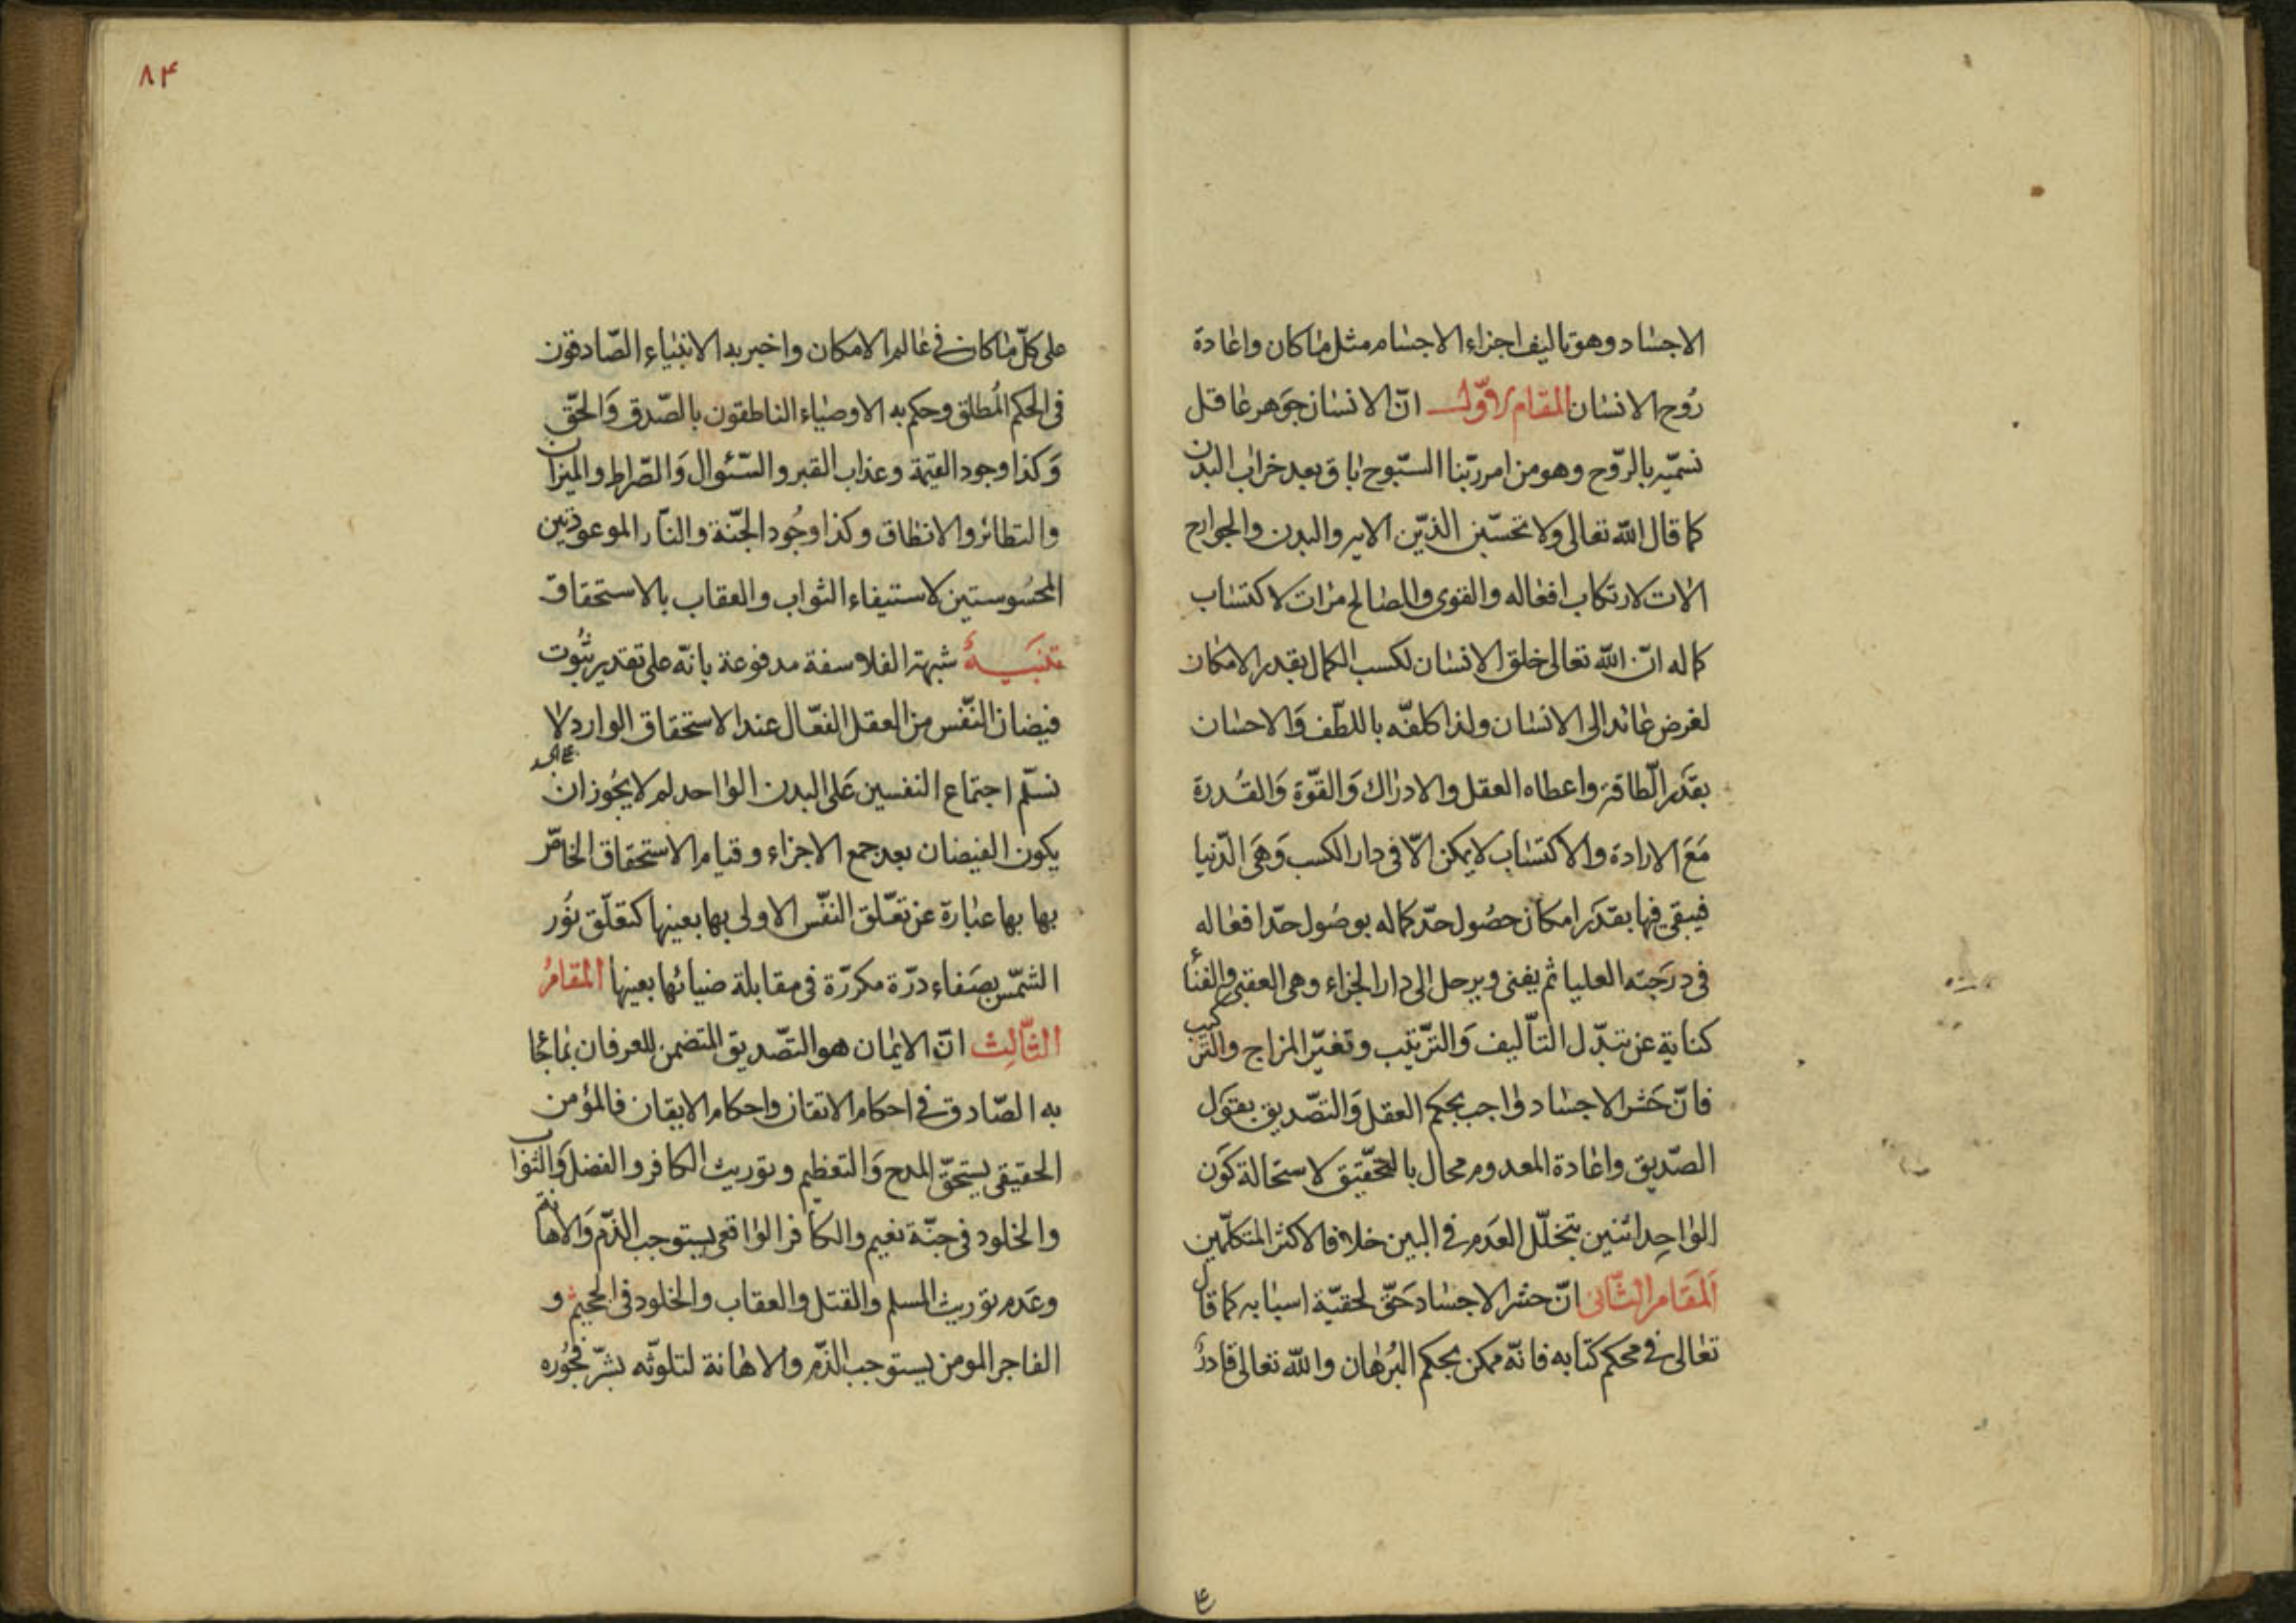 الاجساد وهو تاليف اجزاء الاجسام مثل ما كان واعادة
رُوح الانسان المقام الاوّل انّ الانسان جوَهر عاقل
نسمّيه بالرّوح وهو من امر ربّنا السّبوح باق بعد خراب البدن
كما قال الله تعالى ولا تحسّبن الذيّن الايه والبدن والجوارح
الات لارتكاب افعاله والقوى والمصالح مرات لاكتساب
كماله انّ الله تعالى خلق الانسان لكسب الكمال بقدر الامكان
لغرض عائد الى الانسان ولذا كلفّه باللطّف وَالاحسان
بقدَر الّطاقة واعطاه العقل والادراك وَالقوّة وَالقُدرة
مَعَ الارادة والاكتساب لا يمكن الّا فى دار الكسب وَهىَ الدّنيا
فيبقى فيها بقدَر امكان حصُول حدّ كماله بوصُول حدّ افعاله
فى درَجته العليا ثم يفنى ويرحل الى دار الجزاء وهى العقبى والفنأ
كناية عن تبدّل التأليف وَالترّتيب وتغيّر المزاج والترّكيب
فانّ حَشر الاجساد واجب بحكم العقل وَالتصّديق بقوَل
الصّديق واعادة المعدوم محال بالتحّقيق لاستحالة كوَن
الواحِد اثنين بتخلّل العدَم فى البين خلافا لاكثر المتكلّمين
اَلمقَام الثّانى انّ حشر الاجساد حَقّ لحقيّة اسبابه كما قال
تعالى فى محكم كتابه فانّه ممكن بحكم البُرهان والله تعالى قادرٌ
٨۴
على كلّ ما كان فى عالم الامكان واخبر به الانبياء الصّادقون
فى الحكم المُطلق وحكم به الاوصياء الناطقون بالصّدق وَالحقّ
وَكذا وجود القيمة وعذاب القبر والسّئوال وَالصّراط والميزان
والتطائر والانطاق وكذا وجُود الجنّة والنّار الموعودتين
المحسُوستين لاستيفاء الثواب والعقاب بالاستحقاق
تنبَيهٌ شبهة الفلاسفة مدفوعة بانّه على تقدير ثبُوت
فيضان النّفس من العقل الفعّال عند الاستحقاق الوارد لا
نسلّم اجتماع النفسين عَلى البدن الواحد لم لا يجُوز ان
يكون الفيضان بعد جمع الاجزاء وقيام الاستحقاق الخاصّ
بها بها عبارة عن تعّلق النفّس الاولى بها بعينها كتعلّق نوُر
الشمّس بصَفاء درّة مكررّة فى مقابلة ضيائها بعينها المقامُ
الثّالِث انّ الايمان هو التصّديق المتضمن للعرفان بما جا
به الصّادق فى احكام الاتقان واحكام الايقان فالمؤمن
الحقيقى يستحقّ المدح وَالتعظيم وتوريث الكافر والفضل وَالثواب
والخلود فى جنّة نعيم والكافر الواقعى يستوجب الذّم وَالاهانة
وعَدم توريث المسلم والقتل والعقاب والخلود فى الجحيم و
الفاجر المومن يستوجب الذّم والاهانة لتلوثّه بشرّ فجُوره